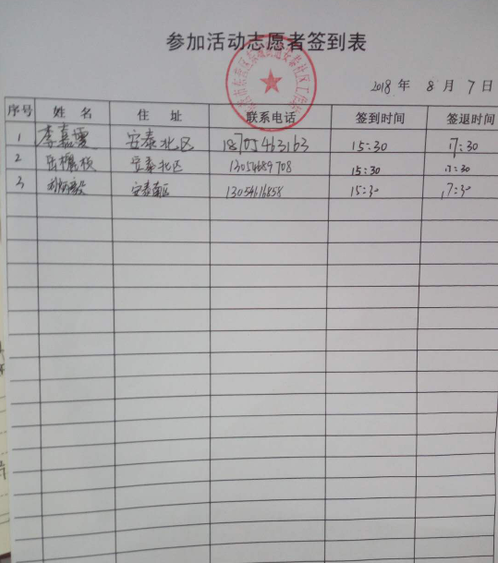 参加活动志愿者签到表
2018 年 8 月 7 日
序号 姓 名 住 址 联系电话 签到时间 签退时间
1 李嘉 安泰北区 18705463163 15:30 17:30
2 安泰北区 13054689708 15:30 17:30
3 安泰南区 13054616858 15:30 17:30